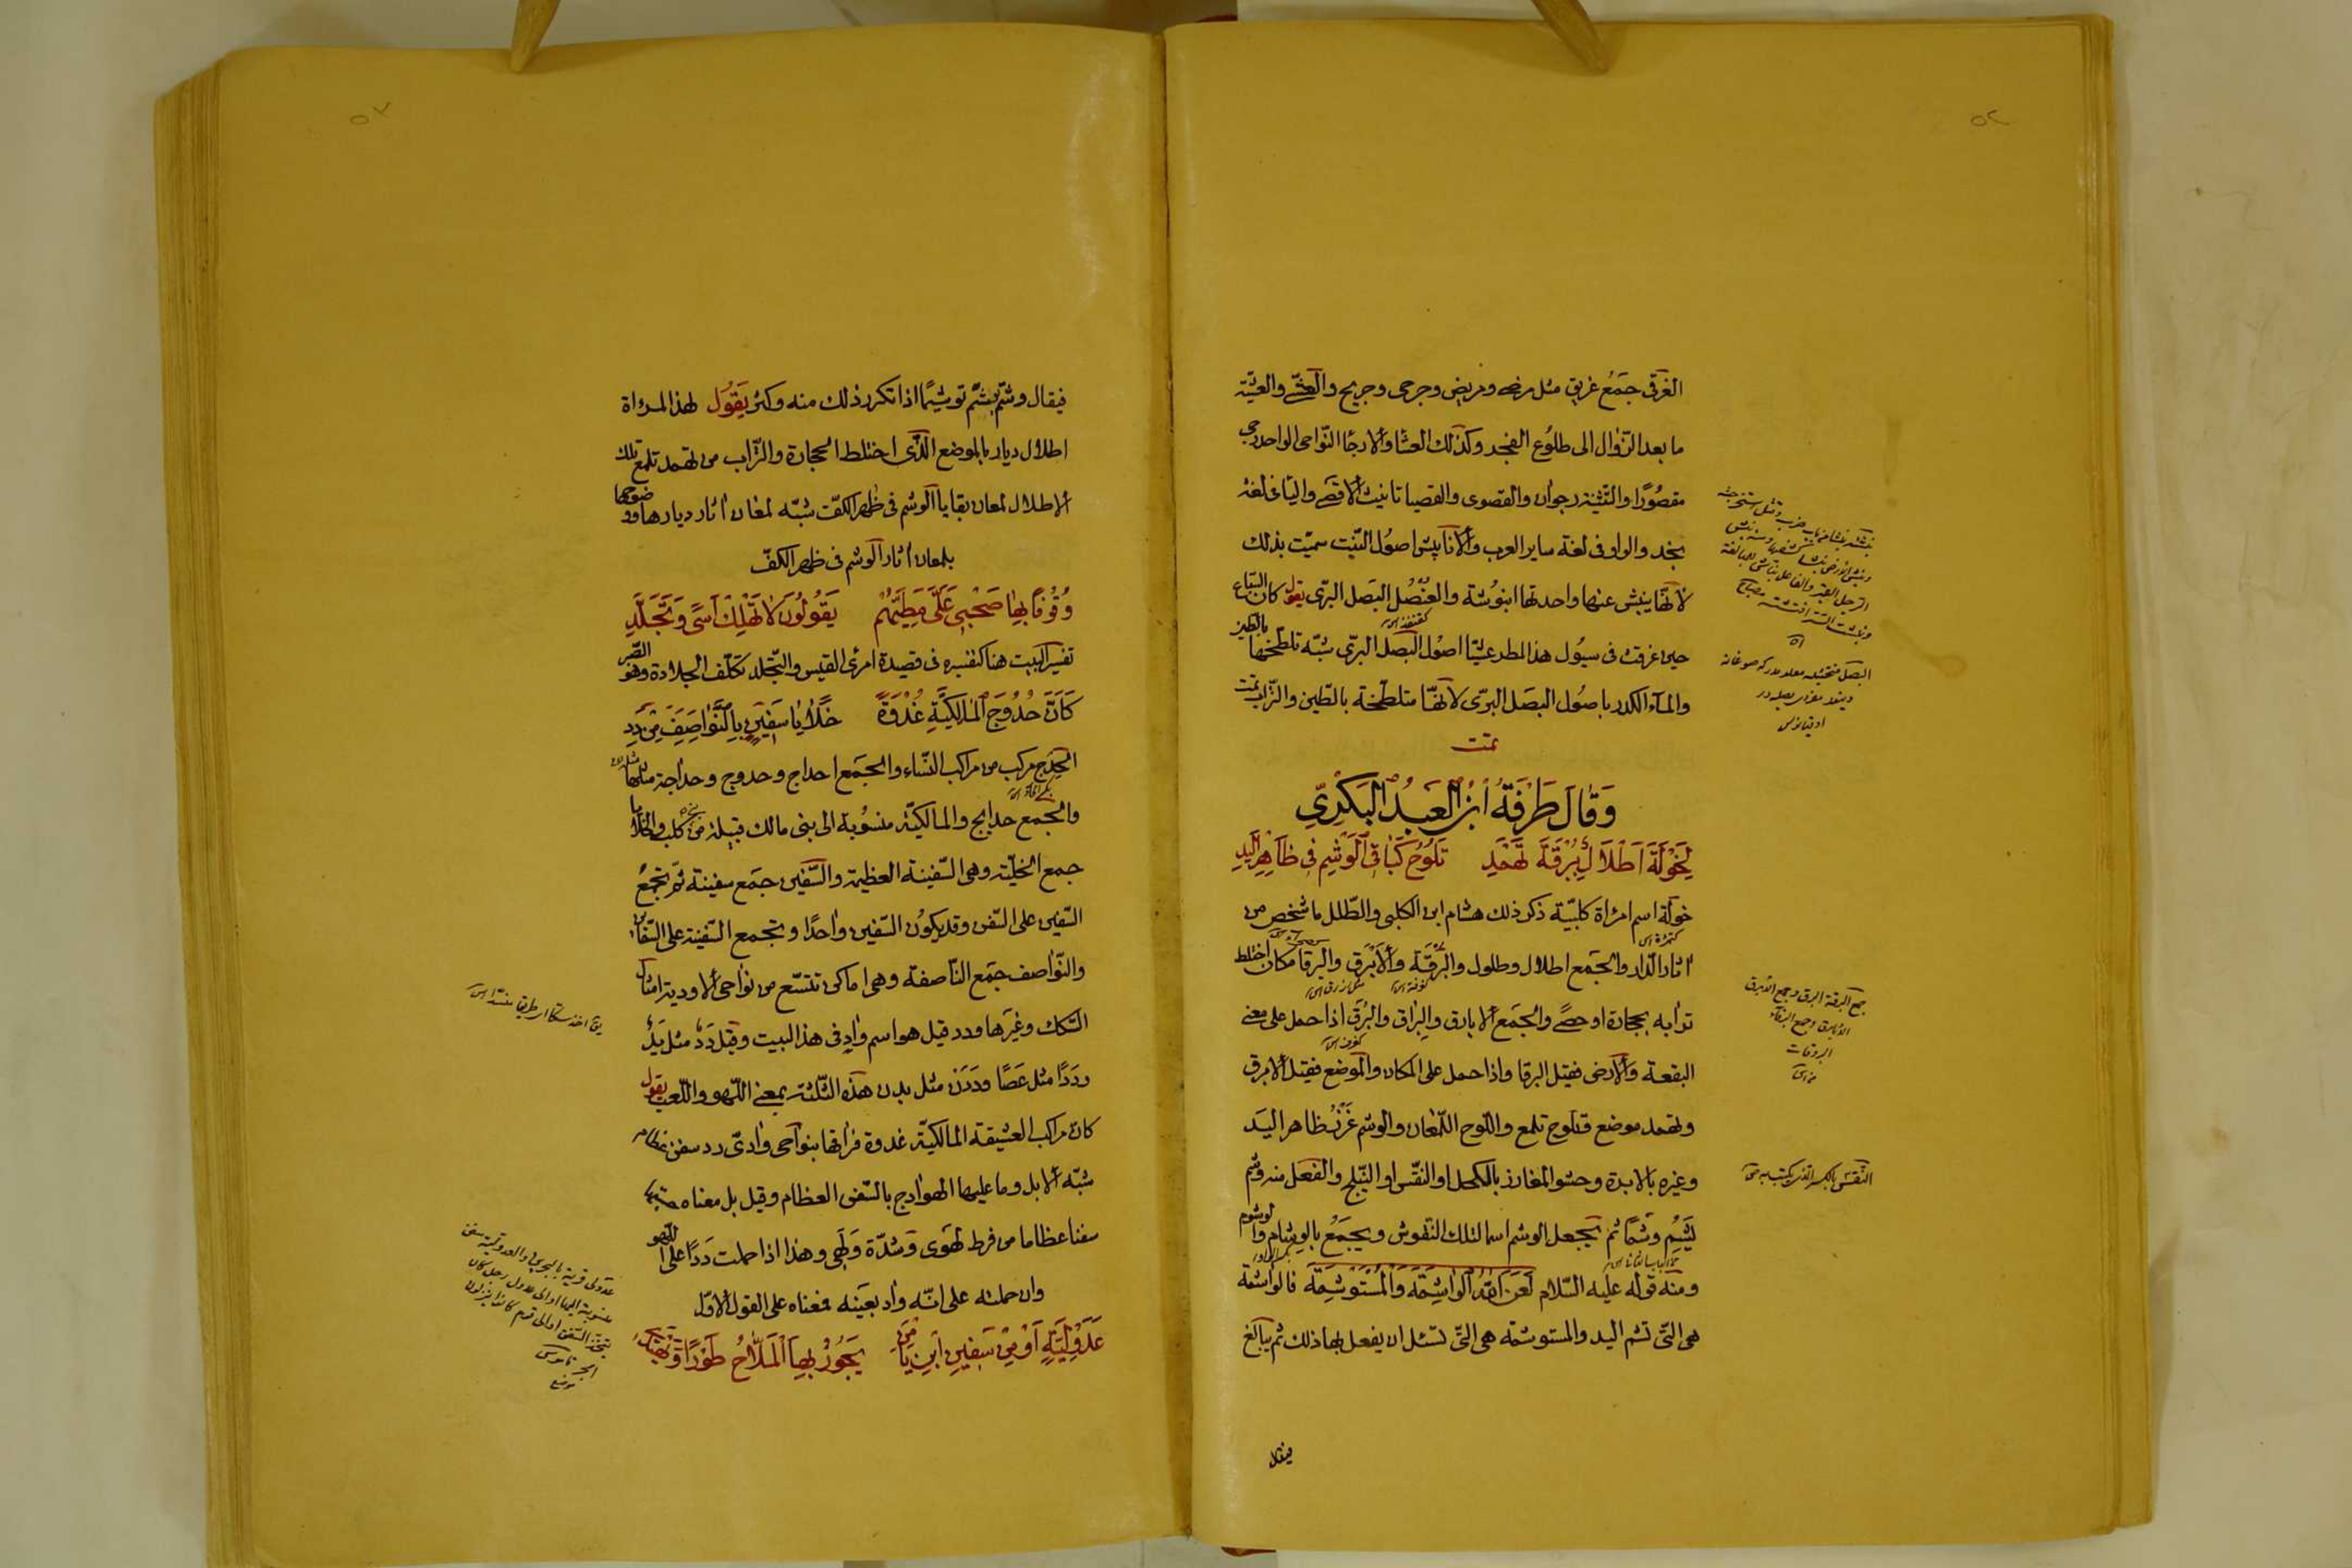 ٥٢
الغرقى جمع غريق مثل مرضى ومريض وجرحى وجريح والعشىّ والعشيّة
ما بعد الزّوال الى طلُوع الفجر وكذلك العشا والارجا النّواحى الواحد رجى
مقصُورًا والتّثنية رجوان والقصوى والقصيا تانيث الاقصى واليا فى لغة
نجد والواو فى لغة ساير العرب والانابيش اصول النّبت سميّت بذلك
لانّها ينبش عنها واحدتها انبوُشة والعُنْصُل البصَل البرّى يقول كان السّباع
حين غرقت فى سيُول هذا المطر عشيّا اصوُل البصَل البرّى شبّه تلطّخها بالطين
والمآء الكدر باصُول البصَل البرّى لانّها متلطّخة بالطّين والتّراب تمت
تمت
وَقَالَ طَرَفَةُ ابْنُ الْعَبْدِ الْبَكْرِيّ
لِخَوْلَةَ اَطْلَالٌ بِبُرْقَةِ ثَهْمَدِ تَلُوحُ كَبَاقِى الْوَشْمِ فِى ظَاهِرِ الْيَدِ
خولة اسم امرٔاة كلبيّة ذكر ذلك هشام ابن الكلبى والطّلل ما شخص من
اثار الدّار والجَمع اطلال وطلول والبُرْقَة والاَبْرَق والبرقا مكان اختلط
ترابه بحجارة او حصًى والجَمع الابارق والبِراق والبُرَق اذا حمل على معنى
البقعة والارض فقيل البرقا واذا حمل على المكان والموضع فقيل الابرق
وثهمد موضع قتلوح تلمع واللّوح اللّمعان والوشم غَرْز ظاهر اليَد
وغيره بالابرة وحشو المغارز بالكحل او النّقس او النّيلج والفعل منه وشم
يَشِمُ وَشْمًا ثم يجعل الوشم اسما لتلك النّقوش ويجمَعُ بالوِشام والوشوم
ومنه قوله عليه السّلام لَعَنَ اللهُ الْوَاشِمَةَ وَالْمُسْتَوْشِمَةَ فالواشمة
هى الّتى تشم اليد والمستوشمة هى الّتى تسئل ان يفعل بها ذلك ثم يبالغ
فيقال
جمع البرقة البرق وجمع الابرق
الابارق وجمع البرقاء
البرقاوات
النّقس بالكسر الذى يكتب به
٥٣
فيقال وشّم يوشّم توشيمًا اذا تكرر ذلك منه وكثر يَقوُل لهذا المرٔاة
اطلال ديار بالموضع الّذى اختلط الحجارة والتّراب من ثهمد تلمع تلك
الاطلال لمعان بقايا الوشم فى ظهر الكفّ شبّه لمعان اثار ديارها ووضوحها
بلمعان اثار الوشم فى ظهر الكفّ
وُقُوفًا بِهَا صَحْبِى عَلَىَّ مَطِيَّهُمْ يَقُولُونَ لَا تَهْلِكْ اَسًى وَتَجَلَّدِ
تفسير البيت هنا كتفسيره فى قصيدة امرئ القيس والتّجلد تكلّف الجلادة وهو الصّبر
كَاَنَّ حُدُوجَ الْمَالِكِيَّةِ غُدْوَةً خَلَايَا سَفِينٍ بِالنَّوَاصِفِ مِنْ دَدِ
الحِدج مركب من مراكب النّساء والجمَع احداج وحدوج وحداجة مثلها
والجمع حدايج والمالكيّة منسُوبة الى بنى مالك قبيلة من كلب والخلايا
جمع الخليّة وهى السّفينة العظيمة والسّفين جمَع سفينة ثمّ تجمعُ
السّفين على السّفن وقد يكوُن السّفين واحدًا وتجمع السّفينة على السّفاين
والنّواصف جمَع النّاصفة وهى اماكن تتسّع من نواحى الاودية امثال
السّكك وغيَرها ودد قيل هو اسم وادٍ فى هذا البيت وقيل دَدٌ مثل يَدٌ
ودَدًا مثل عَصًا ودَدَن مثل بدن هذه الثّلثة بمعنى اللّهو واللّعب يقول
كان مراكب العشيقة المالكيّة غدوة فراقها بنواحى وادى دد سفن عظام
شبّه الابل وما عليها الهوادج بالسّفن العظام وقيل بل معناه حسبتها
سفنا عظاما من فرط لهوى وشدّة وَلَهى وهذا اذا حملت دَدًا على اللّهو
وان حملته على انّه واد بعَينه فمعناه على القول الاوّل
عَدَوْلِيَّةٍ اَوْ مِنْ سَفِينِ ابْنِ يَامِنٍ يَجُورُ بِهَا الْمَلَّاحُ طَوْرًا وَيَهْتَدِى
عدولى قرية بالبحرين والعدولية سفن
منسوبة اليها او الى عدول رجل كان
يتخذ السفن او الى قوم كانوا ينزلون